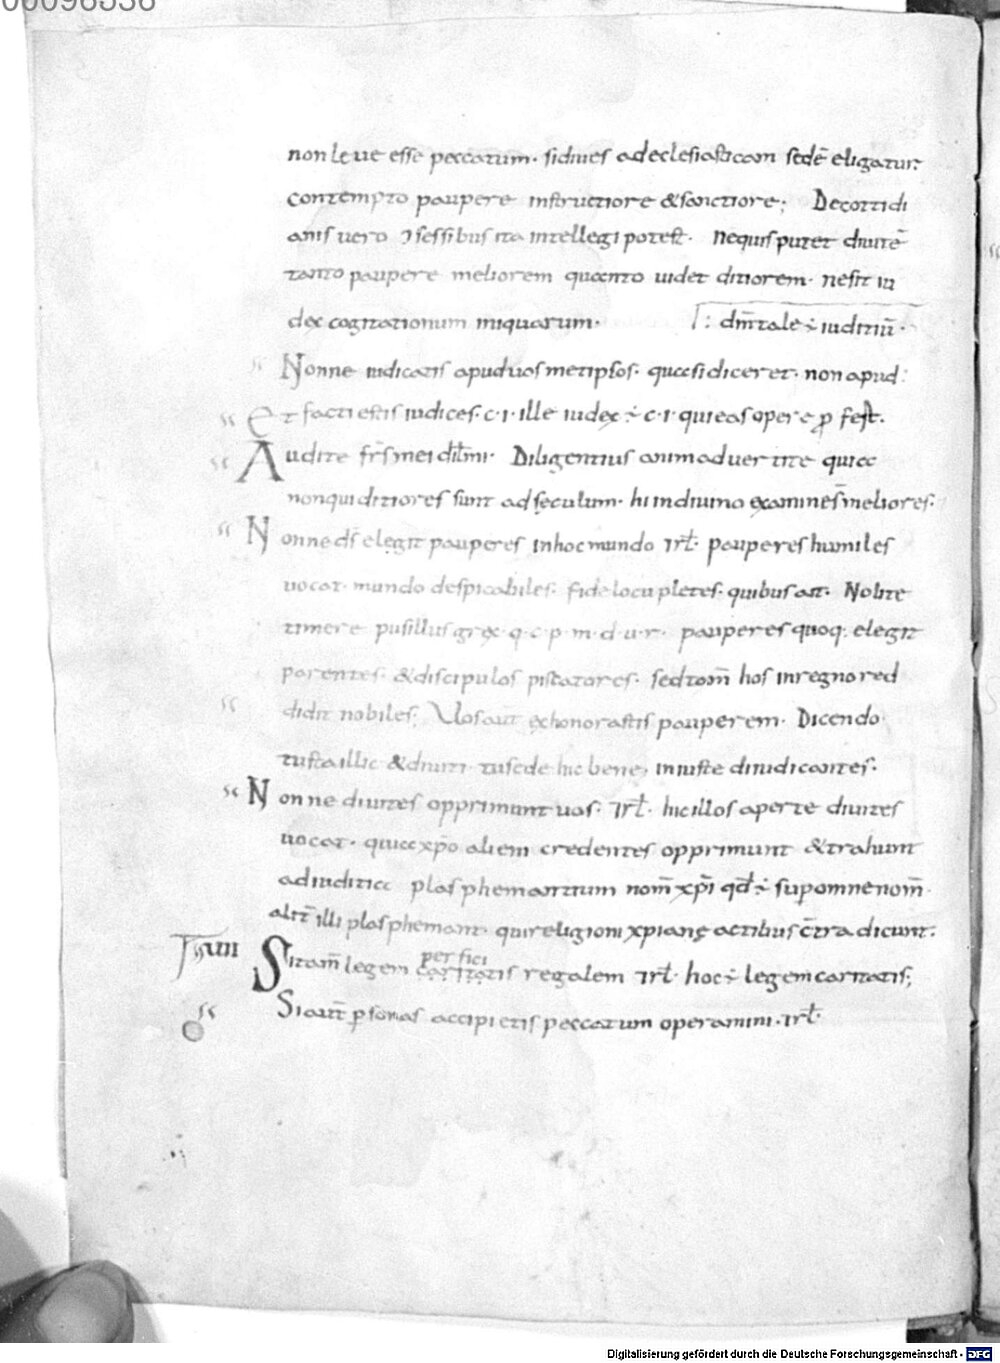 00096336
non leue esse peccatum. si diues ad eclesiasticam sedē eligatur.
contempto paupere instructiore & sanctiore; De cottidi
anis uero ɔsessibus ita intellegi potest. Nequis putet diuitē
tanto paupere meliorem quanto uidet ditiorem. nesit iu
dex cogitationum iniquarum. dm̄ tale ÷ iuditiū.
Nonne iudicatis apud uos metipsos. quasi diceret. non apud
Et facti estis iudices. c. i. ille iudex ÷ c. i. qui eas opere ꝑfest.
Audite frs̄ mei dilm̄i. Diligentius animaduertite quia
non qui ditiores sunt ad seculum. hi in diuino examine s̄ meliores.
Nonne ds̄ elegit pauperes in hoc mundo Trł. pauperes humiles
uocat. mundo despicabiles. fide locupletes. quibus ait. Nolite
timere pusillus grex. q. c. p. m. d. u. r. pauperes quoq. elegit
parentes. & discipulos piscatores. sed tom̄ hos in regno red
didit nobiles; Vos aut̄ exhonorastis pauperem. Dicendo
tu sta illic & diuiti. tu sede hic bene, iniuste diiudicantes.
Nonne diuites opprimunt uos. Trł. hic illos aperte diuites
uocat. quia xp̄o aliem credentes opprimunt & trahunt
ad iuditia plasphemantium nom̄ xp̄i qđ ÷ sup omne nom̄.
alit̄ illi plasphemant. qui religioni xpianę actibus c̄tra dicunt.
perfici
Si tam̄ legem caritatis regalem Trł. hoc ÷ legem caritatis;
Si aut̄ ꝑsonas accipietis peccatum operamini. Trł.
Digitalisierung gefördert durch die Deutsche Forschungsgemeinschaft - DFG